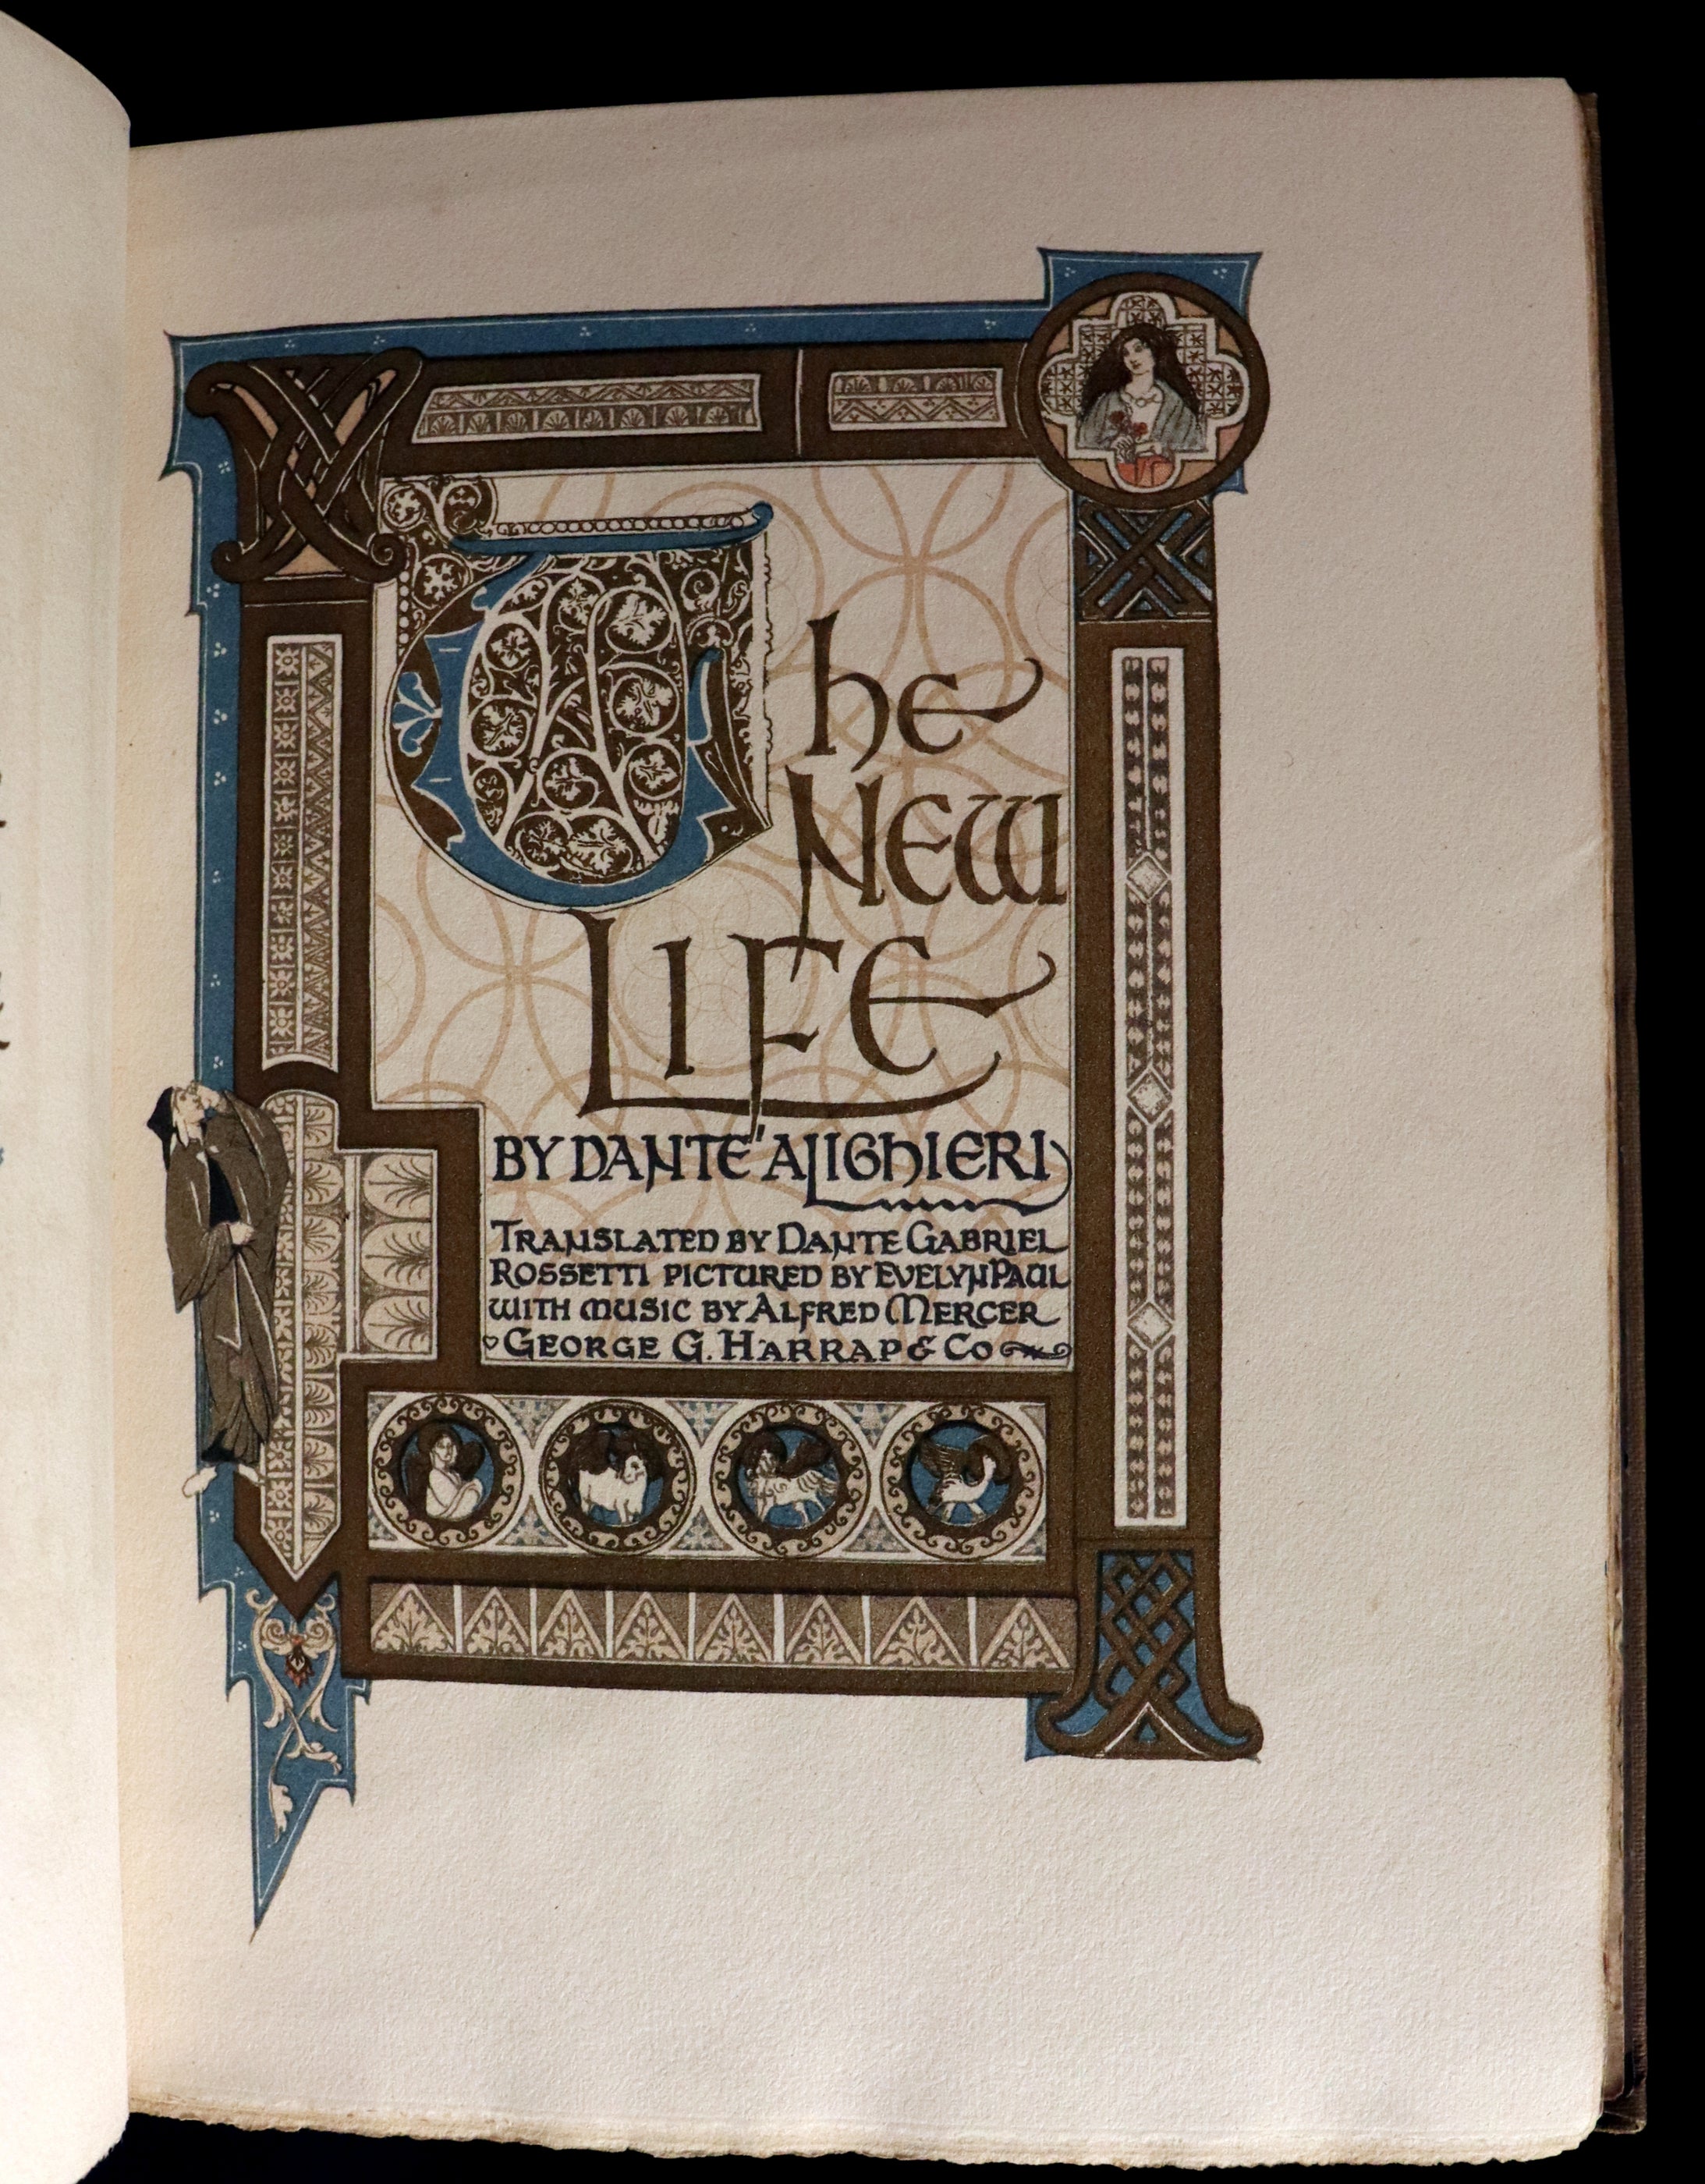 The
New
Life
BY DANTE ALIGHIERI
TRANSLATED BY DANTE GABRIEL
ROSSETTI PICTURED BY EVELYN PAUL
WITH MUSIC BY ALFRED MERCER
GEORGE G. HARRAP & CO